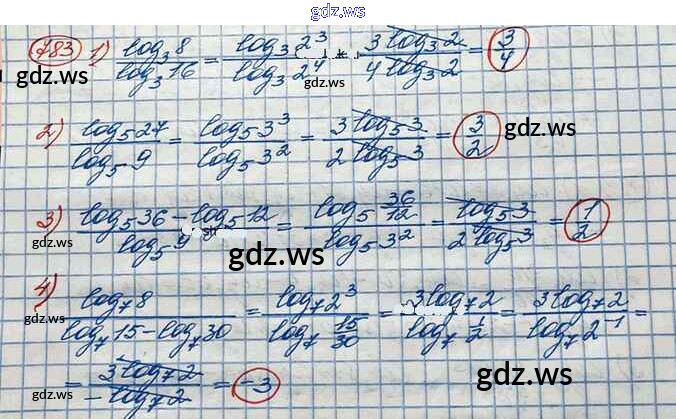 gdz.ws
783 1) log₃8/log₃16 = log₃2³/log₃2⁴ = 3log₃2/4log₃2 = 3/4
gdz.ws
gdz.ws
2) log₅27/log₅9 = log₅3³/log₅3² = 3log₅3/2log₅3 = 3/2
gdz.ws
gdz.ws
3) (log₅36 - log₅12)/log₅9 = log₅(36/12)/log₅3² = log₅3/2log₅3 = 1/2
gdz.ws
gdz.ws
4) log₇8/(log₇15 - log₇30) = log₇2³/log₇(15/30) = 3log₇2/log₇(1/2) = 3log₇2/log₇2⁻¹ =
gdz.ws
= 3log₇2/-log₇2 = -3
gdz.ws
gdz.ws